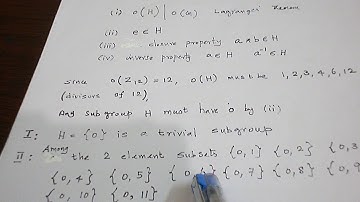 (i) o(H) | o(G) Lagranges Theorem
(ii) e ∈ H
(iii) closure property a * b ∈ H
(iv) inverse property a ∈ H a⁻¹ ∈ H
since o(Z₁₂) = 12, o(H) must be 1, 2, 3, 4, 6, 12
(divisors of 12),
Any subgroup H must have 0 by (ii)
I: H = {0} is a trivial subgroup
II: Among the 2 element subsets {0, 1} {0, 2} {0, 3
{0, 4} {0, 5} {0, 6} {0, 7} {0, 8} {0, 9
{0, 10} {0, 11}